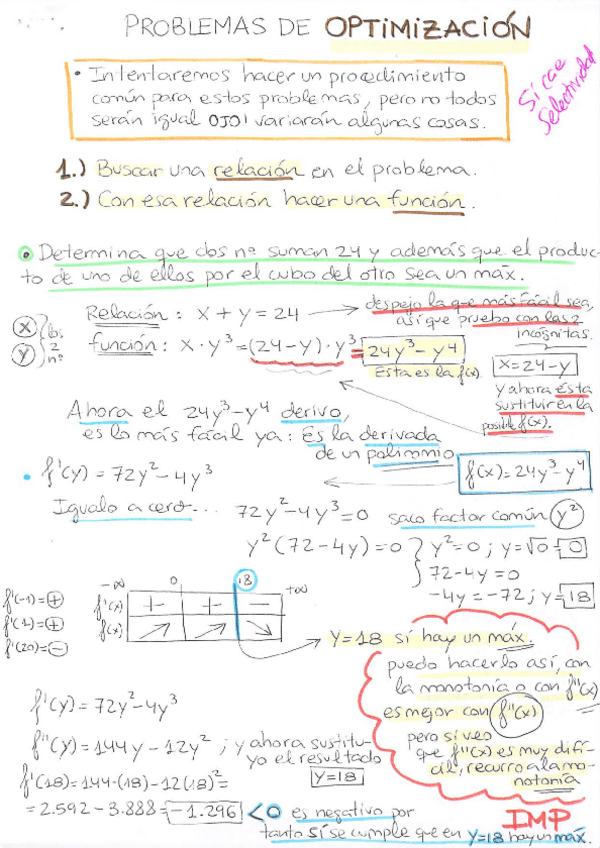 PROBLEMAS DE OPTIMIZACIÓN
Sí cae
Selectividad
• Intentaremos hacer un procedimiento
común para estos problemas, pero no todos
serán igual OJO! variarán algunas cosas.
1.) Buscar una relación en el problema.
2.) Con esa relación hacer una función.
• Determina que dos nº suman 24 y además que el produc-
to de uno de ellos por el cubo del otro sea un máx.
Relación: x + y = 24
despejo la que más fácil sea,
así que pruebo con las 2
incógnitas.
x
y
los
2
nº
función: x · y³ = (24-y) · y³ = 24y³ - y⁴
Esta es la f(x)
x = 24 - y
y ahora ésta
sustituir en la
posible f(x).
Ahora el 24y³-y⁴ derivo,
es lo más fácil ya: Es la derivada
de un polinomio
f(x) = 24y³ - y⁴
• f'(y) = 72y² - 4y³
Igualo a cero... 72y² - 4y³ = 0 saco factor común y²
y² (72 - 4y) = 0 } y² = 0 ; y = √0 = 0
72 - 4y = 0
-4y = -72 ; y = 18
-∞ 0 18 +∞
f'(-1) = +
f'(1) = +
f'(20) = -
f'(x) + + -
f(x) ↗ ↗ ↘
y = 18 sí hay un máx.
puedo hacerlo así, con
la monotonía o con f''(x)
es mejor con f''(x)
pero si veo
que f''(x) es muy difí-
cil, recurro a la mo-
notonía
IMP
f'(y) = 72y² - 4y³
f''(y) = 144y - 12y² ; y ahora sustitu-
yo el resultado
y = 18
f'(18) = 144·(18) - 12(18)² =
= 2.592 - 3.888 = -1.296 < 0 es negativo por
tanto sí se cumple que en y=18 hay un máx.